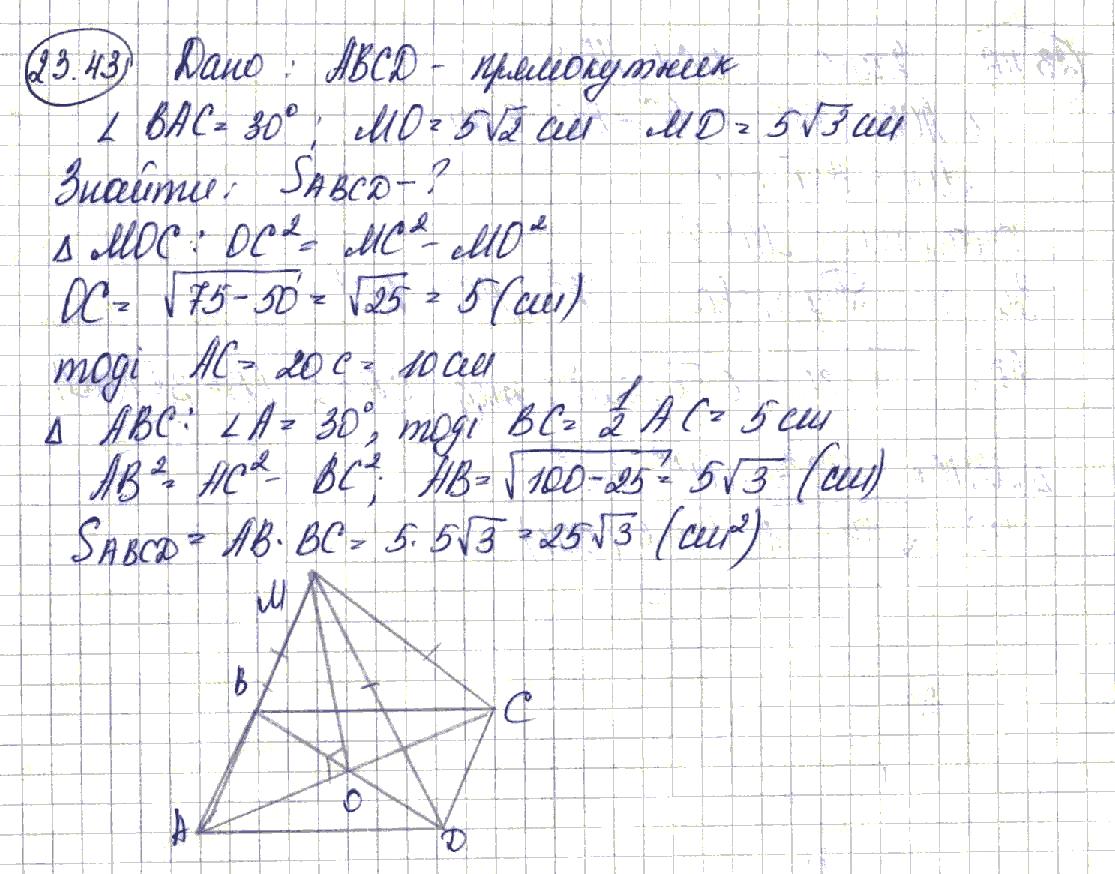 23.43) Дано : ABCD - прямокутник
∠ BAC = 30° ; MO = 5√2 см MD = 5√3 см
Знайти: S ABCD - ?
Δ MOC : OC² = MC² - MO²
OC = √75-50 = √25 = 5 (см)
тоді AC = 2OC = 10 см
Δ ABC : ∠A = 30°, тоді BC = 1/2 AC = 5 см
AB² = AC² - BC²; AB = √100-25 = 5√3 (см)
S ABCD = AB · BC = 5 · 5√3 = 25√3 (см²)
M
B
C
O
A
D